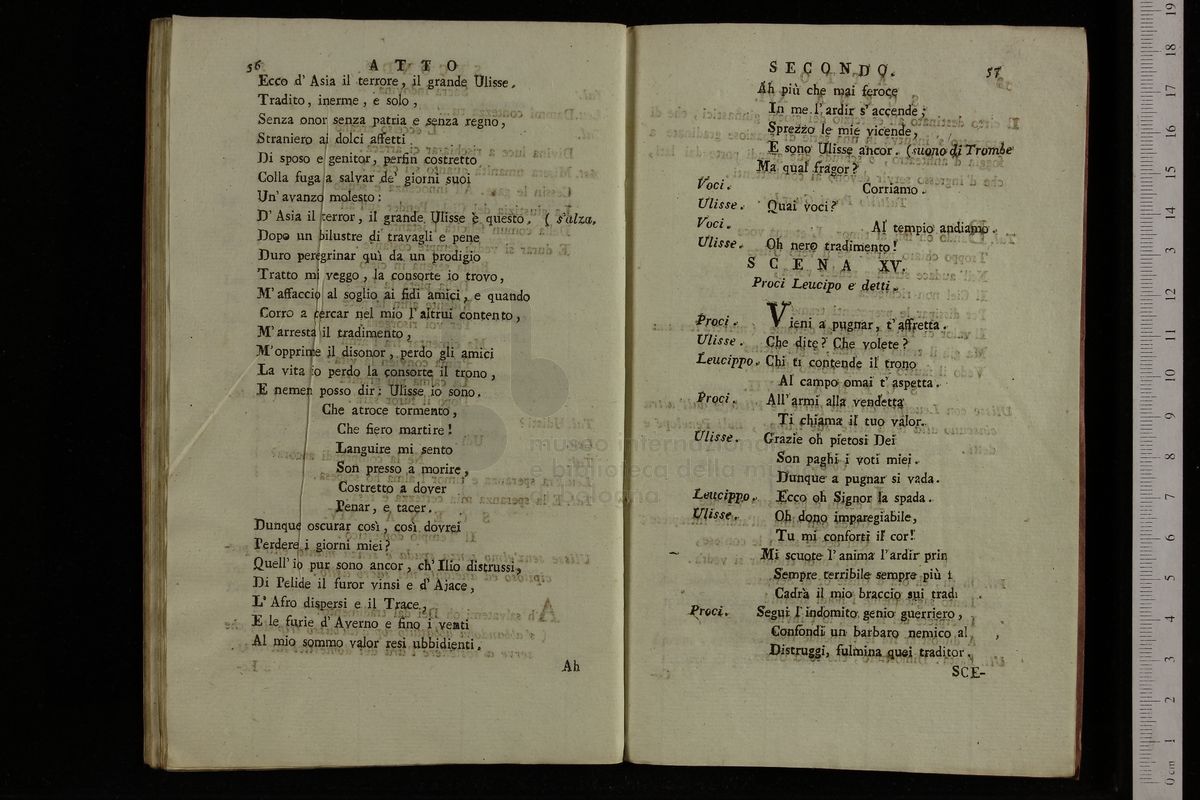 56 ATTO
Ecco d' Asia il terrore, il grande Ulisse.
Tradito, inerme, e solo,
Senza onor senza patria e senza regno,
Straniero ai dolci affetti
Di sposo e genitor, perfin costretto
Colla fuga a salvar de' giorni suoi
Un' avanzo molesto:
D' Asia il terror, il grande Ulisse è questo. ( s'alza.
Dopo un bilustre di travagli e pene
Duro peregrinar quì da un prodigio
Tratto mi veggo, la consorte io trovo,
M' affaccio al soglio ai fidi amici, e quando
Corro a cercar nel mio l' altrui contento,
M' arresta il tradimento,
M' opprime il disonor, perdo gli amici
La vita io perdo la consorte il trono,
E nemen posso dir: Ulisse io sono.
Che atroce tormento,
Che fiero martire!
Languire mi sento
Son presso a morire,
Costretto a dover
Penar, e tacer.
Dunque oscurar così, così dovrei
Perdere i giorni miei?
Quell' io pur sono ancor, ch' Ilio distrussi,
Di Pelide il furor vinsi e d' Ajace,
L' Afro dispersi e il Trace,
E le furie d' Averno e fino i venti
Al mio sommo valor resi ubbidienti.
Ah
SECONDO. 57
Ah più che mai feroce
In me l' ardir s' accende;
Sprezzo le mie vicende,
E sono Ulisse ancor. (suono di Trombe
Ma qual fragor?
Voci. Corriamo.
Ulisse. Quai voci?
Voci. Al tempio andiamo.
Ulisse. Oh nero tradimento!
SCENA XV.
Proci Leucipo e detti.
Proci. Vieni a pugnar, t' affretta.
Ulisse. Che dite? Che volete?
Leucippo. Chi ti contende il trono
Al campo omai t' aspetta.
Proci. All' armi alla vendetta
Ti chiama il tuo valor.
Ulisse. Grazie oh pietosi Dei
Son paghi i voti miei.
Dunque a pugnar si vada.
Leucippo. Ecco oh Signor la spada.
Ulisse. Oh dono imparegiabile,
Tu mi conforti il cor!
Mi scuote l' anima l' ardir
Sempre terribile sempre più
Cadrà il mio braccio sui
Proci. Segui l' indomito genio guerriero,
Confondi un barbaro nemico
Distruggi, fulmina quei traditor.
SCE-
museo internazionale
e biblioteca della musica
bologna
0 cm 1 2 3 4 5 6 7 8 9 10 11 12 13 14 15 16 17 18 19